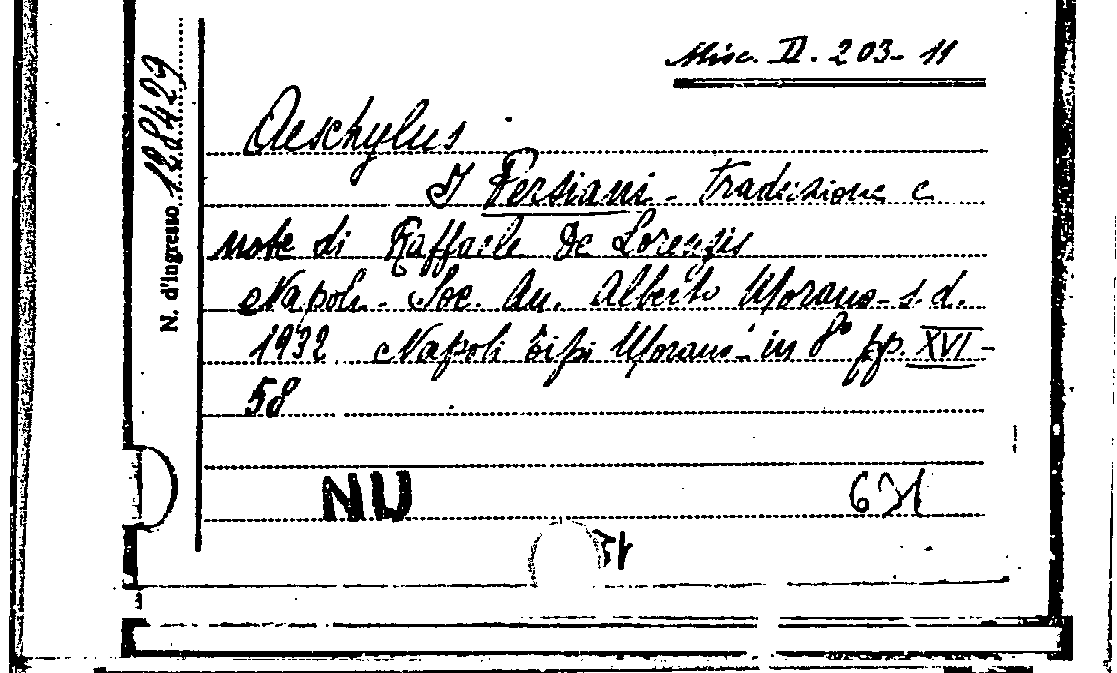 Misc. II. 203-11
N. d'Ingresso 128429
Aeschylus
I Persiani - Traduzione e
note di Raffaele De Lorenzis
Napoli - Soc. An. Alberto Morano - s.d.
1932 Napoli Tipi Morano in 8° pp. XVI -
58
NU